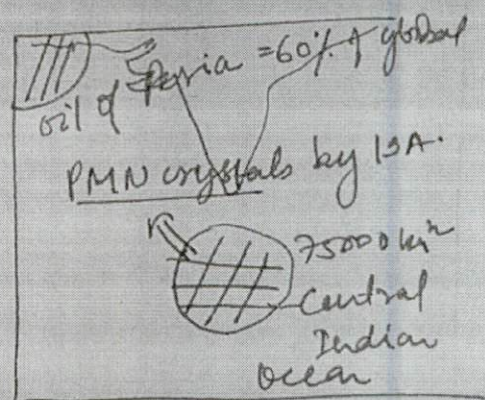 oil of Persia = 60% of global
PMN crystals by ISA.
75000 km²
Central
Indian
Ocean